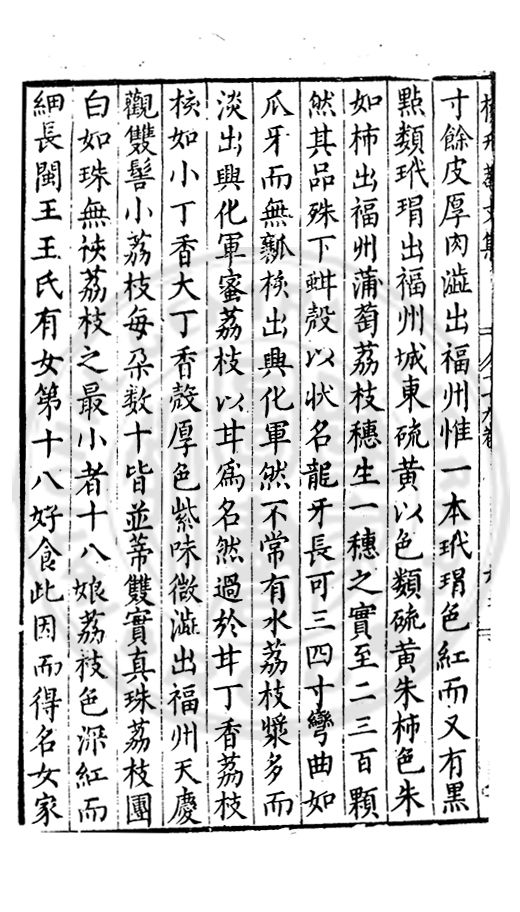 寸餘皮厚肉澁出福州惟一本玳瑁色紅而又有黑
點類玳瑁出福州城東硫黃以色類硫黃朱柿色朱
如柿出福州蒲萄荔枝穗生一穗之實至二三百顆
然其品殊下蚶殼以狀名龍牙長可三四寸彎曲如
爪牙而無瓤核出興化軍然不常有水荔枝漿多而
淡出興化軍蜜荔枝以甘爲名然過於甘丁香荔枝
核如小丁香大丁香殼厚色紫味微澁出福州天慶
觀雙髻小荔枝每朶数十皆並蒂雙實真珠荔枝團
白如珠無核荔枝之最小者十八娘荔枝色深紅而
細長閩王王氏有女第十八好食此因而得名女家